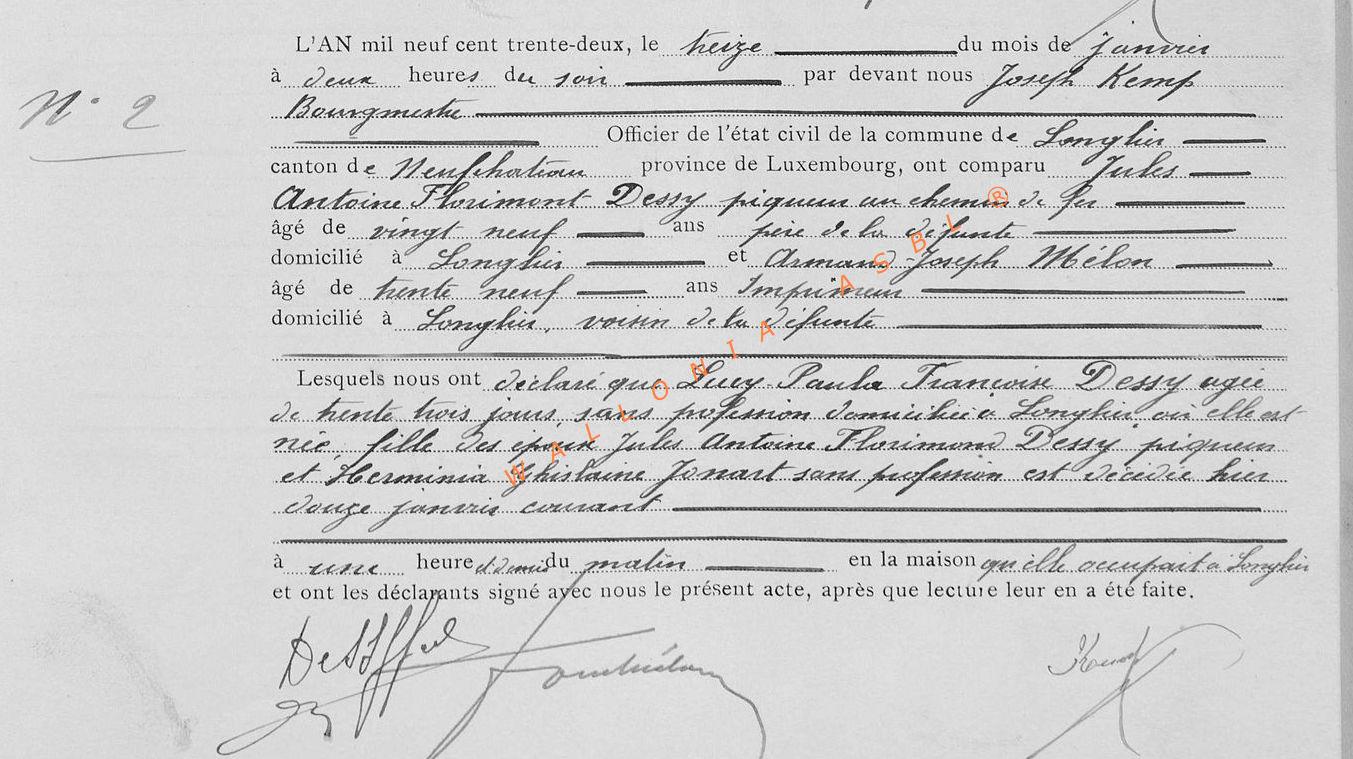 L'AN mil neuf cent trente-deux, le treize du mois de janvier
à deux heures du soir par devant nous Joseph Kemp
Bourgmestre
N° 2
Officier de l'état civil de la commune de Longlier
canton de Neufchâteau province de Luxembourg, ont comparu Jules
Antoine Florimont Dessy piqueur au chemin de fer
âgé de vingt neuf ans père de la défunte
domicilié à Longlier et Armand Joseph Mélon
âgé de trente neuf ans Imprimeur
domicilié à Longlier, voisin de la défunte
Lesquels nous ont déclaré que Lucy Paula Françoise Dessy agée
de trente trois jours, sans profession domiciliée à Longlier où elle est
née, fille des époux Jules Antoine Florimond Dessy piqueur
et Herminia Ghislaine Jonart sans profession est décédée hier
douze janvier courant
à une heure et demie du matin en la maison qu'elle occupait à Longlier
et ont les déclarants signé avec nous le présent acte, après que lecture leur en a été faite.
WALLONIA ASBL ®